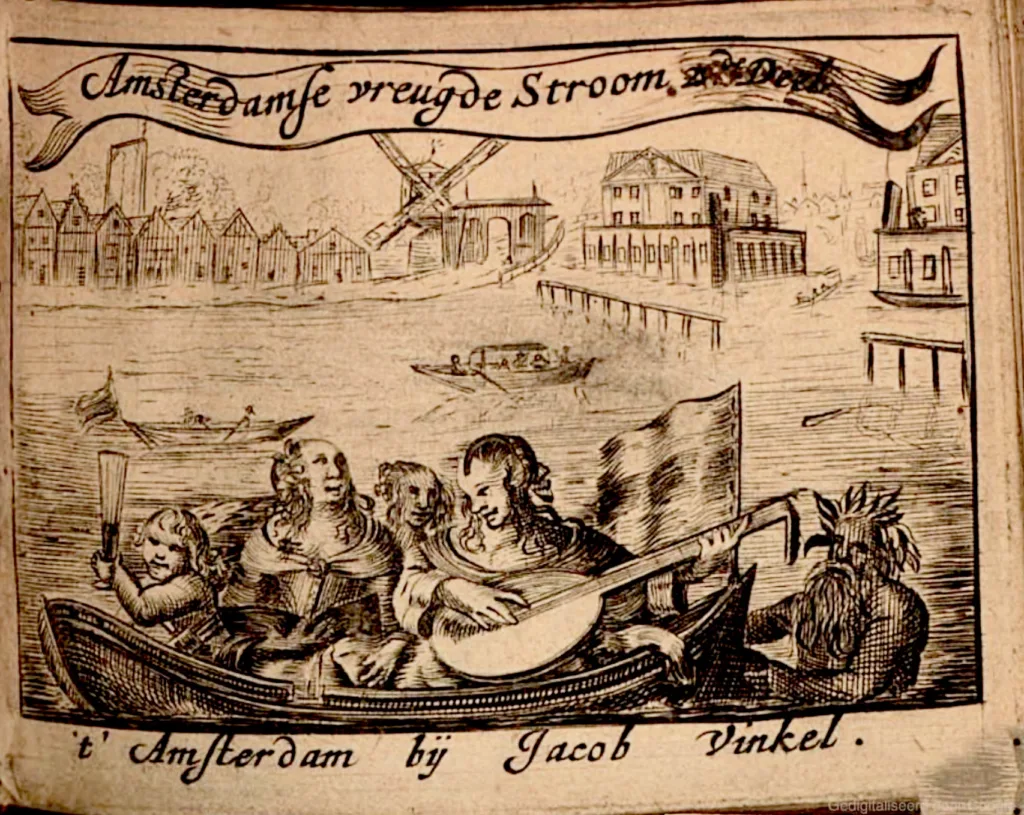 Amsterdamse vreugde Stroom. Deel
't' Amsterdam bij Jacob Vinkel.
Gedigitaliseerd door Google